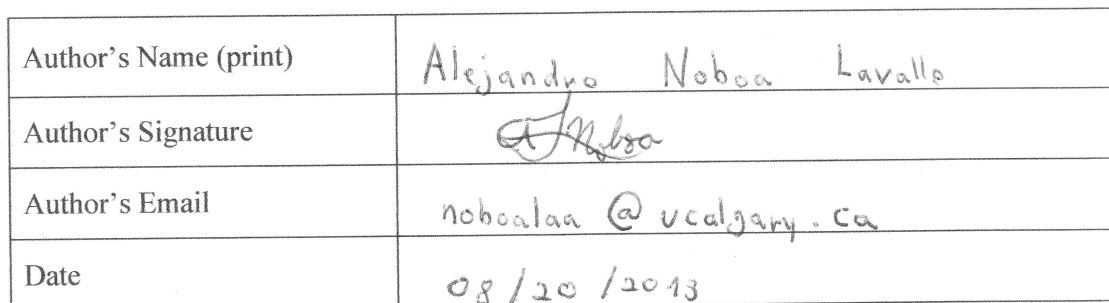 Author's Name (print) Alejandro Noboa Lavalle
Author's Signature A Noboa
Author's Email noboalaa @ ucalgary.ca
Date 08/20/2013